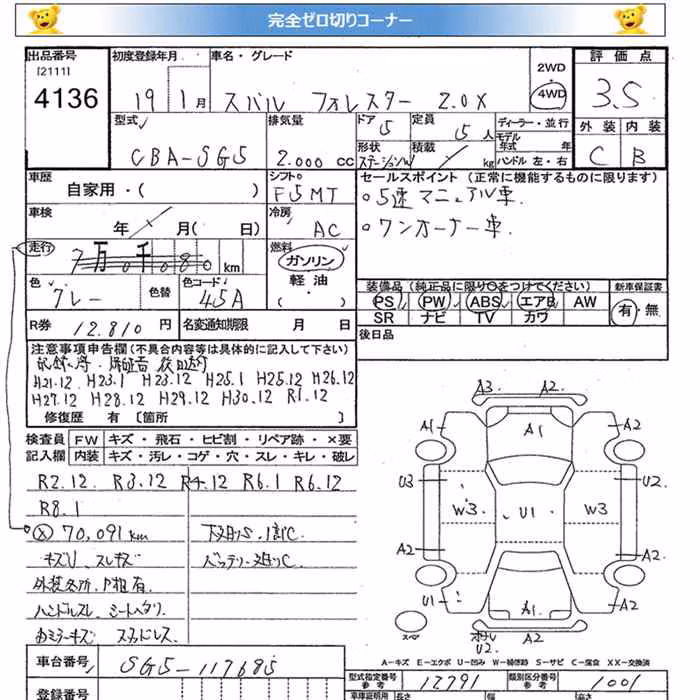 完全ゼロ切りコーナー
出品番号 初度登録年月 車名・グレード 2WD 評価点
[2111]
4136 19 1月 スバル フォレスター 2.0X 4WD 3.5
型式 排気量 ドア 5 定員 5人 ディーラー・並行 外装 内装
モデル年式 年
CBA-SG5 2.000 CC 形状 ステーションW 積載 kg ハンドル 左・右 C B
車歴 シフト セールスポイント(正常に機能するものに限ります)
自家用・( ) F5MT ○5速マニュアル車.
車検 冷房 ○ワンオーナー車.
年 月( 日) AC
走行 7万0千080 km 燃料 ガソリン
軽油
・( )
色 グレー 色替 色コード 45A
装備品(純正品に限り○をつけてください) 新車保証書
PS PW ABS エアB AW 有・無
SR ナビ TV カワ
R券 12.810 円 名変通知期限 月 日
後日品
注意事項申告欄(不具合内容等は具体的に記入して下さい)
記録簿・保証書 後日送り
H21.12 H23.1 H23.12 H25.1 H25.12 H26.12
H27.12 H28.12 H29.12 H30.12 R1.12
修復歴 有 〔箇所 〕
検査員 FW キズ・飛石・ヒビ割・リペア跡・×要
記入欄 内装 キズ・汚レ・コゲ・穴・スレ・キレ・破レ
R2.12. R3.12 R4.12 R6.1 R6.12
R8.1
70,091km 下廻りS.1部C
キズU スレキズ バッテリー廻りC
外装各所、P粗有
ハンドルスレ シートヘタリ
ミラーキズ スタッドレス
A3 A2
A1 A1 A2
U3 U2
W3 U1 W3
A2 A2
U1 A1 A2
スペア
A2
U2
A-キズ E-エクボ U-凹み W-補修跡 S-サビ C-腐食 XX-交換済
車台番号 SG5-117685
型式指定番号 参考 12791 類別区分番号 参考 1001
登録番号 車庫証明用 長さ 幅 高さ